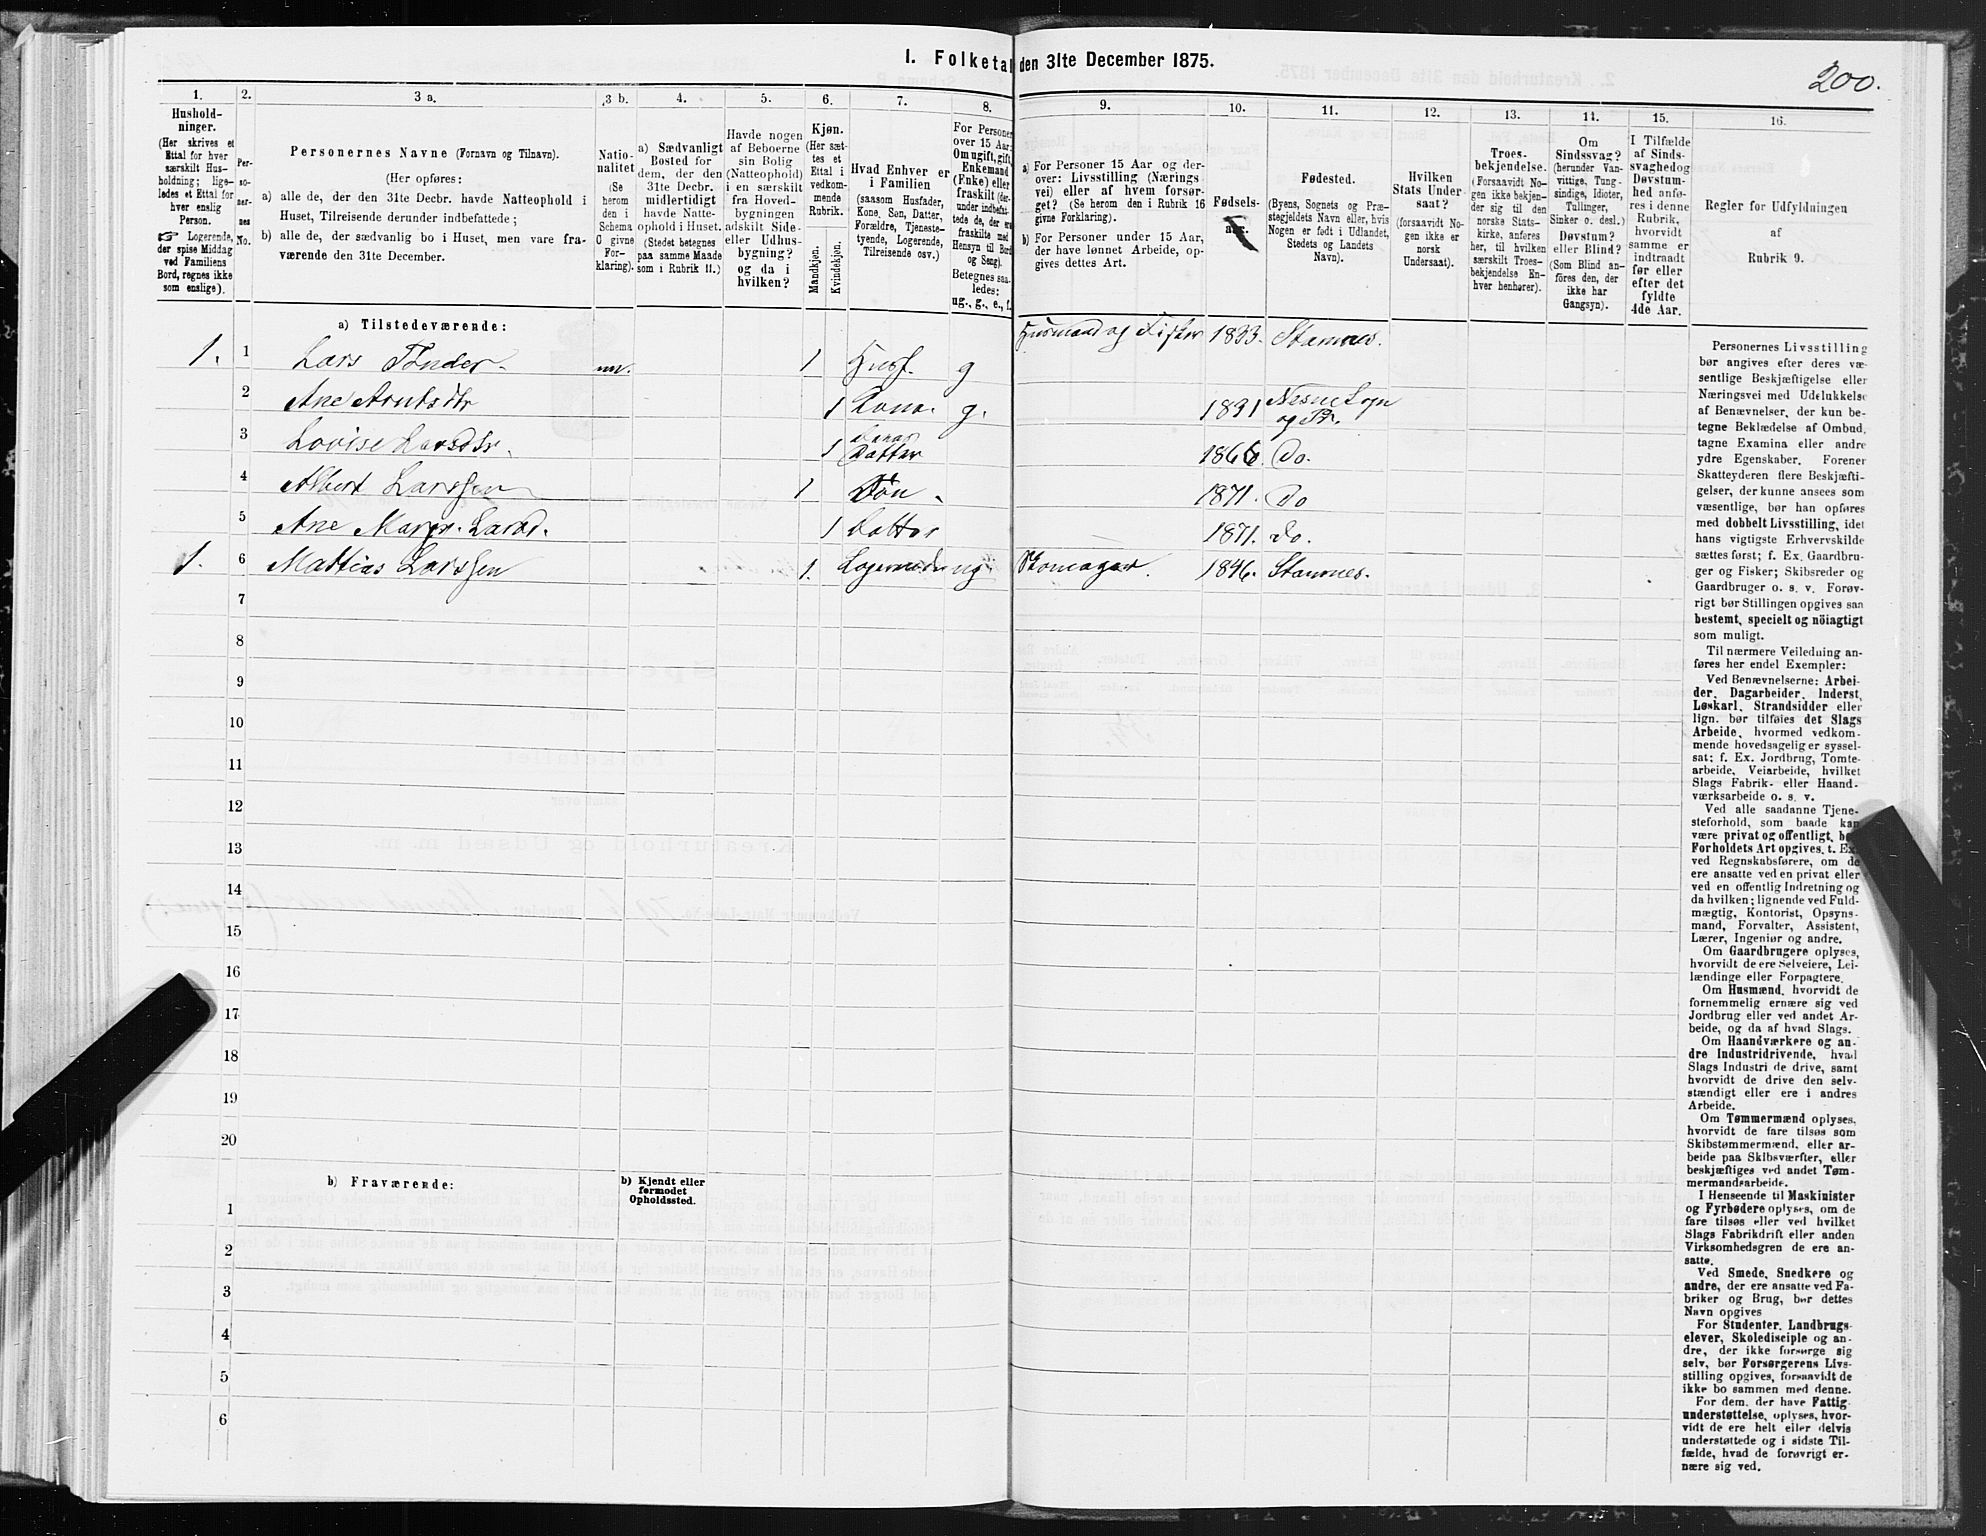 I. Folketal den 31te December 1875.
200.
1.
Hushold-
ninger.
(Her skrives et
Ettal for hver
særskilt Hus-
holdning; lige-
ledes et Ettal for
hver enslig
Person.
☞ Logerende,
der spise Middag
ved Familiens
Bord, regnes ikke
som enslige).
2.
Per-
so-
ner-
nes
No.
3 a.
Personernes Navne (Fornavn og Tilnavn).
(Her opføres:
a) alle de, der den 31te Decbr. havde Natteophold i
Huset, Tilreisende derunder indbefattede;
b) alle de, der sædvanlig bo i Huset, men vare fra-
værende den 31te December.
3 b.
Natio-
nalitet
(Se
herom
den i
Schema
C givne
For-
klaring).
4.
a) Sædvanligt
Bosted for
dem, der den
31te Decbr.
midlertidigt
havde Natte-
ophold i Huset.
(Stedet betegnes
paa samme Maade
som i Rubrik 11.)
5.
Havde nogen
af Beboerne
sin Bolig
(Natteophold)
i en særskilt
fra Hoved-
bygningen
adskilt Side-
eller Udhus-
bygning?
og da i
hvilken?
6.
Kjøn.
(Her sæt-
tes et
Ettal i
vedkom-
mende
Rubrik.
Mandkjøn.
Kvindekjøn.
7.
Hvad Enhver er
i Familien
(saasom Husfader,
Kone, Søn, Datter,
Forældre, Tjeneste-
tyende, Logerende,
Tilreisende osv.)
8.
For Personer
over 15 Aar:
Om ugift, gift,
Enkemand
(Enke) eller
fraskilt (der-
under indbefat-
tede de, der ere
fraskilte med
Hensyn til Bord
og Seng).
Betegnes saa-
ledes:
ug., g., e., f.
9.
a) For Personer 15 Aar og der-
over: Livsstilling (Nærings-
vei) eller af hvem forsør-
get? (Se herom den i Rubrik 16
givne Forklaring).
b) For Personer under 15 Aar,
der have lønnet Arbeide, op-
gives dettes Art.
10.
Fødsels-
aar.
11.
Fødested.
(Byens, Sognets og Præ-
stegjeldets Navn eller, hvis
Nogen er født i Udlandet,
Stedets og Landets
Navn).
12.
Hvilken
Stats Under-
saat?
(forsaavidt No-
gen ikke er
norsk
Undersaat).
13.
Troes-
bekjendelse.
(Forsaavidt No-
gen ikke bekjen-
der sig til den
norske Stats-
kirke, anføres
her, til hvilken
særskilt Troes-
bekjendelse En-
hver henhører).
14.
Om
Sindssvag?
(herunder Van-
vittige, Tung-
sindige, Idioter,
Tullinger,
Sinker o. desl.)
Døvstum?
eller Blind?
(Som Blind an-
føres den, der
ikke har
Gangsyn).
15.
I Tilfælde
af Sinds-
svaghed og
Døvstum-
hed anfø-
res i denne
Rubrik,
hvorvidt
samme er
indtraadt
før eller
efter det
fyldte
4de Aar.
16.
Regler for Udfyldningen
af
Rubrik 9.
a) Tilstedeværende:
1. 1 Lars Tønder. nn. 1 Husf. g Husmand og Fisker 1833. Stamnes.
2 Ane Arntsdtr 1 Kone. g. 1831 Nesne Sogn
og Pr.
3 Lovise Larsdtr. 1 Datter 1866. Do.
4 Albert Larssen 1 Søn. 1871. Do
5 Ane Marg. Larsd. 1 Datter 1871. Do.
1. 6 Mattias Larssen 1. Logerende ug Skomager. 1846. Stamnes.
7
8
9
10
11
12
13
14
15
16
17
18
19
20
b) Fraværende:
b) Kjendt eller
formodet
Opholdssted.
1
2
3
4
5
6
Personernes Livsstilling
bør angives efter deres væ-
sentlige Beskjæftigelse eller
Næringsvei med Udelukkelse
af Benævnelser, der kun be-
tegne Beklædelse af Ombud,
tagne Examina eller andre
ydre Egenskaber. Forener
Skatteyderen flere Beskjæfti-
gelser, der kunne ansees som
væsentlige, bør han opføres
med dobbelt Livsstilling, idet
hans vigtigste Erhvervskilde
sættes først; f. Ex. Gaardbru-
ger og Fisker; Skibsreder og
Gaardbruger o. s. v. Forøv-
rigt bør Stillingen opgives saa
bestemt, specielt og nöiagtigt
som muligt.
Til nærmere Veiledning an-
føres her endel Exempler:
Ved Benævnelserne: Arbei-
der, Dagarbeider, Inderst,
Løskarl, Strandsidder eller
lign. bør tilføies det Slags
Arbeide, hvormed vedkom-
mende hovedsagelig er syssel-
sat; f. Ex. Jordbrug, Tomte-
arbeide, Veiarbeide, hvilket
Slags Fabrik- eller Haand-
værksarbeide o. s. v.
Ved alle saadanne Tjene-
steforhold, som baade kan
være privat og offentligt, bør
Forholdets Art opgives, t. Ex.
ved Regnskabsførere, om de
ere ansatte ved en privat eller
ved en offentlig Indretning og
da hvilken; lignende ved Fuld-
mægtig, Kontorist, Opsyns-
mand, Forvalter, Assistent,
Lærer, Ingeniør og andre.
Om Gaardbrugere oplyses,
hvorvidt de ere Selveiere, Lei-
lændinge eller Forpagtere.
Om Husmænd, hvorvidt de
fornemmelig ernære sig ved
Jordbrug eller ved andet Ar-
beide, og da af hvad Slags.
Om Haandværkere og an-
dre Industridrivende, hvad
Slags Industri de drive, samt
hvorvidt de drive den selv-
stændigt eller ere i andres
Arbeide.
Om Tømmermænd oplyses,
hvorvidt de fare tilsøs som
Skibstømmermænd, eller ar-
beide paa Skibsværfter, eller
beskjæftiges ved andet Tøm-
mermandsarbeide.
I Henseende til Maskinister
og Fyrbødere oplyses, om de
fare tilsøs eller ved hvilket
Slags Fabrikdrift eller anden
Virksomhedsgren de ere an-
satte.
Ved Smede, Snedkere og
andre, der ere ansatte ved Fa-
briker og Brug, bør dettes
Navn opgives
For Studenter, Landbrugs-
elever, Skoledisciple og an-
dre, der ikke forsørge sig
selv, bør Forsørgerens Livs-
stilling opgives, forsaavidt de
ikke bo sammen med denne.
For dem, der have Fattig-
understøttelse, oplyses, hvor-
vidt de ere helt eller delvis
understøttede og i sidste Til-
fælde, hvad de forøvrigt er-
nære sig ved.